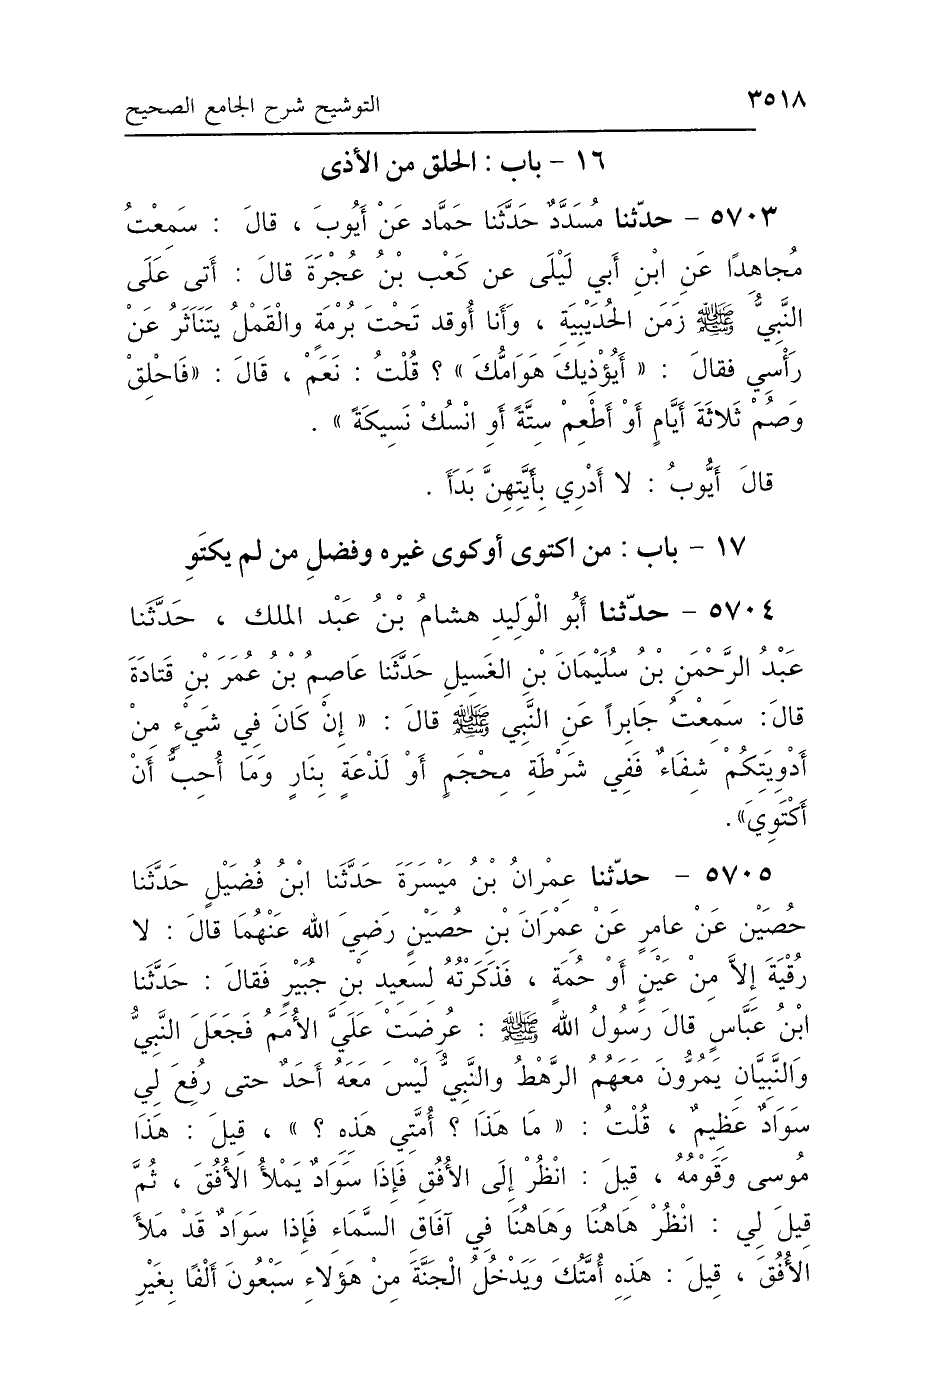 ٣٥١٨ التوشيح شرح الجامع الصحيح
١٦ - باب : الحلق من الأذى
٥٧٠٣ - حدّثنا مُسَدَّدٌ حَدَّثَنا حَمَّاد عَنْ أَيُوبَ ، قالَ : سَمِعْتُ
مُجاهِدًا عَنِ ابْنِ أَبي لَيْلَى عن كَعْب بْنُ عُجْرَةَ قالَ : أَتى عَلَى
النَّبِيُّ ﷺ زَمَن الحُدَيْبِيَة ، وأَنا أُوقد تَحْتَ بُرْمَةٍ والْقَمْلُ يَتَنَاثَرُ عَنْ
رَأْسِي فقالَ : « أَيُؤْذِيكَ هَوَامُّكَ » ؟ قُلْتُ : نَعَمْ ، قَالَ : «فَاحْلِقْ
وَصُمْ ثَلاثَةَ أَيَّامٍ أَوْ أَطْعِمْ سِتَّةً أَوِ انْسُكْ نَسِيكَةً » .
قالَ أَيُّوبُ : لا أَدْرِي بِأَيَّتِهِنَّ بَدَأَ .
١٧ - باب : من اكتوى أو كوى غيره وفضلِ من لم يكتَوِ
٥٧٠٤ - حدّثنا أَبُو الْوَلِيدِ هشامُ بْنُ عَبْد الملك ، حَدَّثَنا
عَبْدُ الرَّحْمَنِ بْنُ سُلَيْمَانَ بْنِ الغَسِيلِ حَدَّثَنا عاصِمُ بْنُ عُمَرَ بْنِ قَتادَةَ
قالَ: سَمِعْتُ جَابِراً عَنِ النَّبِي ﷺ قالَ : « إِنْ كَانَ فِي شَيْءٍ مِنْ
أَدْوِيَتِكُمْ شِفَاءٌ فَفِي شَرْطَةِ مِحْجَمٍ أَوْ لَذْعَةٍ بِنَارٍ وَمَا أُحِبُّ أَنْ
أَكْتَوِيَ».
٥٧٠٥ - حدّثنا عِمْرانُ بْنُ مَيْسَرَةَ حَدَّثَنا ابْنُ فُضَيْلٍ حَدَّثَنا
حُصَيْن عَنْ عامِرٍ عَنْ عِمْرَانَ بْنِ حُصَيْنٍ رَضِيَ الله عَنْهُمَا قالَ : لا
رُقْيَةَ إِلاَّ مِنْ عَيْنٍ أَوْ حُمَةٍ ، فَذَكَرْتُهُ لِسَعِيد بْنِ جُبَيْرٍ فَقالَ : حَدَّثَنا
ابْنُ عَبَّاسٍ قالَ رَسُولُ الله ﷺ : عُرِضَتْ عَلَيَّ الأُمَمُ فَجَعَلَ النَّبِيُّ
وَالنَّبِيَّانِ يَمُرُّونَ مَعَهُمُ الرَّهْطُ والنَّبِيُّ لَيْسَ مَعَهُ أَحَدٌ حتى رُفِعَ لِي
سَوَادٌ عَظِيمٌ ، قُلْتُ : « ما هَذَا ؟ أُمَّتِي هَذِهِ ؟ » ، قِيلَ : هَذَا
مُوسى وَقَوْمُهُ ، قِيلَ : انْظُرْ إِلَى الأُفُقِ فَإِذَا سَوَادٌ يَمْلأُ الأُفُقَ ، ثُمَّ
قِيلَ لِي : انْظُرْ هَاهُنَا وَهَاهُنَا فِي آفَاقِ السَّمَاءِ فَإِذا سَوَادٌ قَدْ مَلأَ
الأُفُقَ ، قِيلَ : هَذِهِ أُمَّتُكَ وَيَدْخُلُ الْجَنَّةَ مِنْ هَؤلاءِ سَبْعُونَ أَلْفًا بِغَيْرِ